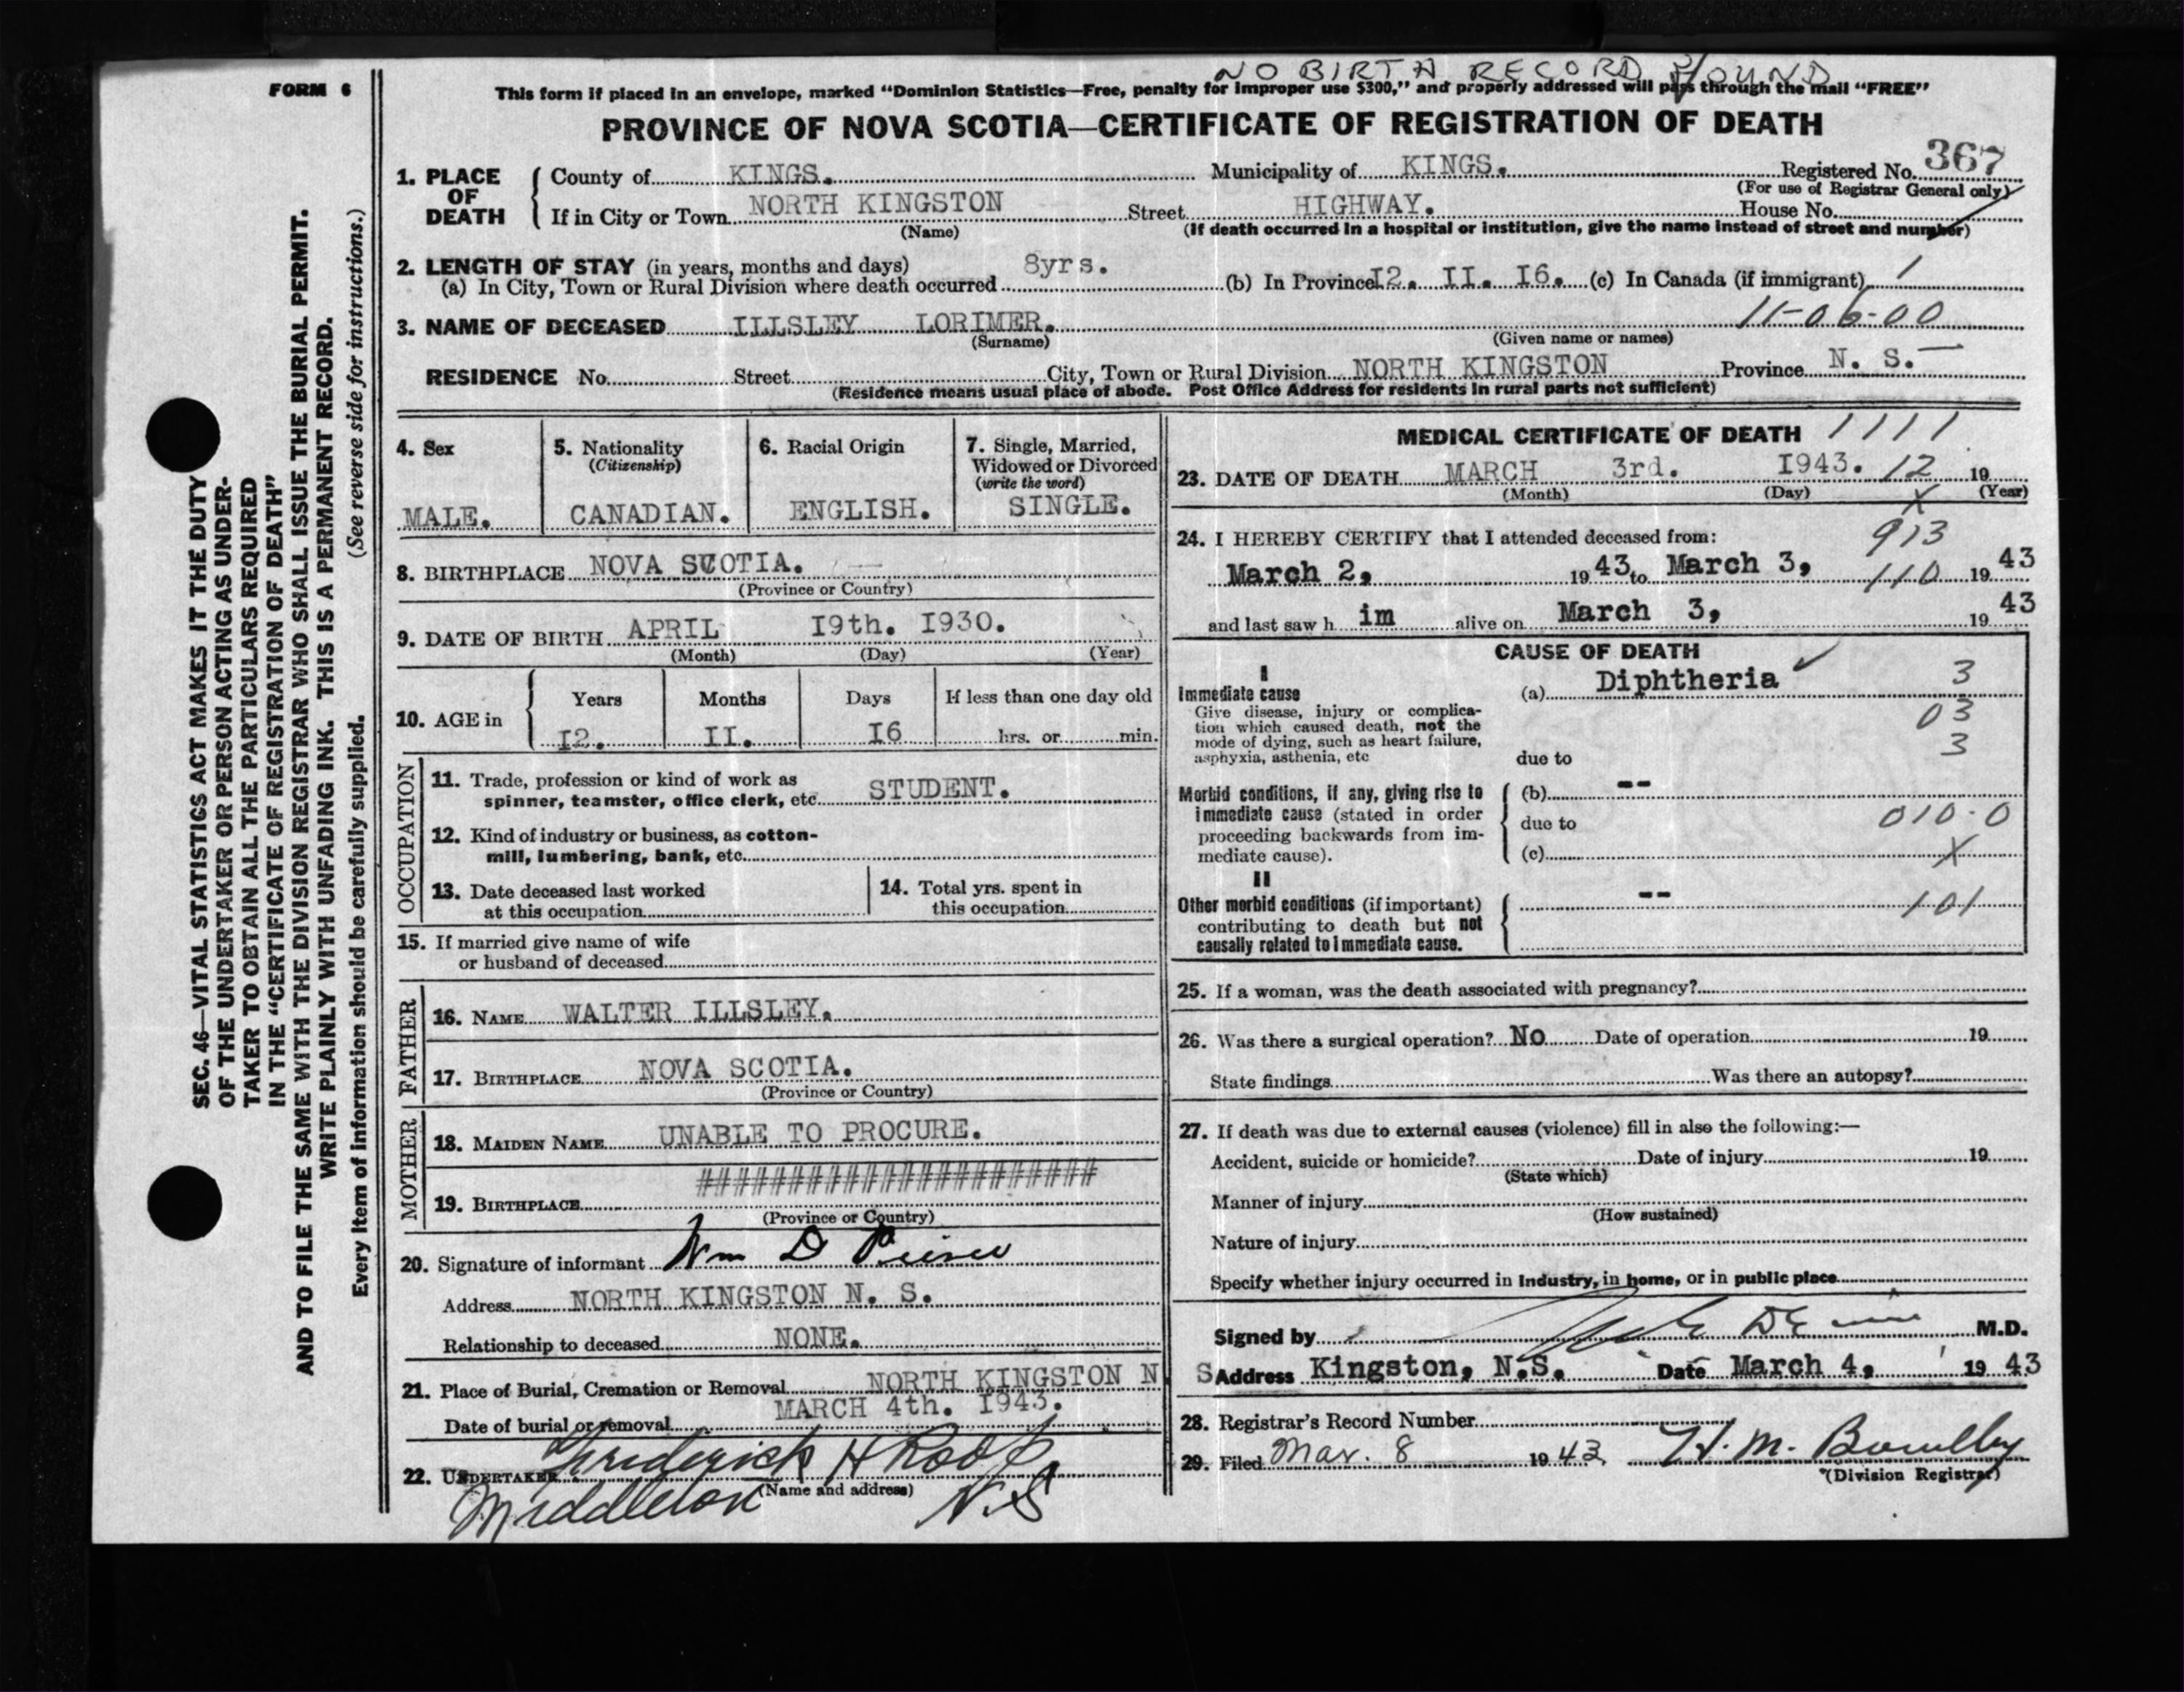 NO BIRTH RECORD FOUND
FORM 6
This form if placed in an envelope, marked “Dominion Statistics—Free, penalty for improper use $300,” and properly addressed will pass through the mail “FREE”
PROVINCE OF NOVA SCOTIA—CERTIFICATE OF REGISTRATION OF DEATH
1. PLACE OF DEATH County of KINGS. Municipality of KINGS. Registered No. 367
(For use of Registrar General only)
If in City or Town NORTH KINGSTON Street HIGHWAY. House No.
(Name) (If death occurred in a hospital or institution, give the name instead of street and number)
2. LENGTH OF STAY (in years, months and days)
(a) In City, Town or Rural Division where death occurred 8yrs. (b) In Province I2. II. I6. (c) In Canada (if immigrant) 1
3. NAME OF DECEASED ILLSLEY LORIMER. 11-06-00
(Surname) (Given name or names)
RESIDENCE No. Street City, Town or Rural Division NORTH KINGSTON Province N. S.
(Residence means usual place of abode. Post Office Address for residents in rural parts not sufficient)
4. Sex
MALE.
5. Nationality
(Citizenship)
CANADIAN.
6. Racial Origin
ENGLISH.
7. Single, Married,
Widowed or Divorced
(write the word)
SINGLE.
8. BIRTHPLACE NOVA SCOTIA.
(Province or Country)
9. DATE OF BIRTH APRIL I9th. I930.
(Month) (Day) (Year)
10. AGE in Years Months Days If less than one day old
I2. II. I6 hrs. or min.
OCCUPATION
11. Trade, profession or kind of work as
spinner, teamster, office clerk, etc. STUDENT.
12. Kind of industry or business, as cotton-
mill, lumbering, bank, etc.
13. Date deceased last worked
at this occupation
14. Total yrs. spent in
this occupation
15. If married give name of wife
or husband of deceased
FATHER
16. NAME WALTER ILLSLEY.
17. BIRTHPLACE NOVA SCOTIA.
(Province or Country)
MOTHER
18. MAIDEN NAME UNABLE TO PROCURE.
######################
19. BIRTHPLACE
(Province or Country)
20. Signature of informant Wm D
Address NORTH KINGSTON N. S.
Relationship to deceased NONE.
21. Place of Burial, Cremation or Removal NORTH KINGSTON N. S
Date of burial or removal MARCH 4th. I943.
22. UNDERTAKER Frederick H Roop
(Name and address)
Middleton N.S
MEDICAL CERTIFICATE OF DEATH 1111
23. DATE OF DEATH MARCH 3rd. I943. 12 19
(Month) (Day) (Year)
X
24. I HEREBY CERTIFY that I attended deceased from: 913
March 2, 19 43 to March 3, 110 19 43
and last saw h im alive on March 3, 19 43
CAUSE OF DEATH
I
Immediate cause
Give disease, injury or complica-
tion which caused death, not the
mode of dying, such as heart failure,
asphyxia, asthenia, etc
(a) Diphtheria ✓ 3
03
due to 3
Morbid conditions, if any, giving rise to
immediate cause (stated in order
proceeding backwards from im-
mediate cause).
(b) --
due to 010-0
(c) X
II
Other morbid conditions (if important)
contributing to death but not
causally related to immediate cause.
-- 101
25. If a woman, was the death associated with pregnancy?
26. Was there a surgical operation? No Date of operation 19
State findings Was there an autopsy?
27. If death was due to external causes (violence) fill in also the following:—
Accident, suicide or homicide? Date of injury 19
(State which)
Manner of injury
(How sustained)
Nature of injury
Specify whether injury occurred in industry, in home, or in public place
Signed by M.D.
Address Kingston, N.S. Date March 4, 19 43
28. Registrar's Record Number
29. Filed Mar. 8 19 43 H. M.
(Division Registrar)
SEC. 46—VITAL STATISTICS ACT MAKES IT THE DUTY
OF THE UNDERTAKER OR PERSON ACTING AS UNDER-
TAKER TO OBTAIN ALL THE PARTICULARS REQUIRED
IN THE “CERTIFICATE OF REGISTRATION OF DEATH”
AND TO FILE THE SAME WITH THE DIVISION REGISTRAR WHO SHALL ISSUE THE BURIAL PERMIT.
WRITE PLAINLY WITH UNFADING INK. THIS IS A PERMANENT RECORD.
Every item of information should be carefully supplied. (See reverse side for instructions.)